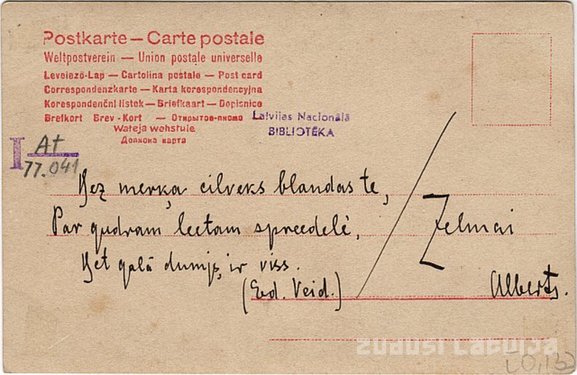 Postkarte — Carte postale
Weltpostverein — Union postale universelle
Levelező-Lap — Cartolina postale — Post card
Correspondenzkarte — Karta korespondencyjna
Korespondenční listek — Briefkaart — Dopisnico
Brefkort Brev-Kort — Открытое-писмо
Wateja wehstule
Дописна карта
Latvijas Nacionālā
BIBLIOTĒKA
I At
77.041
Bez merķa cilveks blandas te,
Par gudram leetam spreedelē,
Bet galā dumjs ir viss.
(Ed. Veid.)
Zelmai
Alberts.
ZUDUSĪ LATVIJA